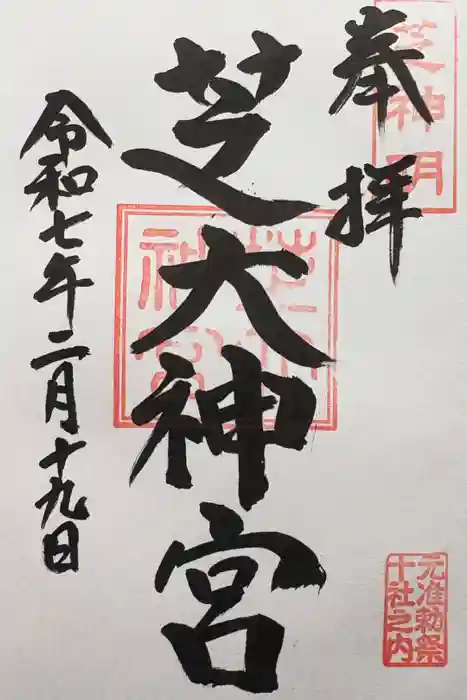 奉拝
芝神明
芝大神宮
芝大神宮
令和七年二月十九日
元准勅祭
十社之内